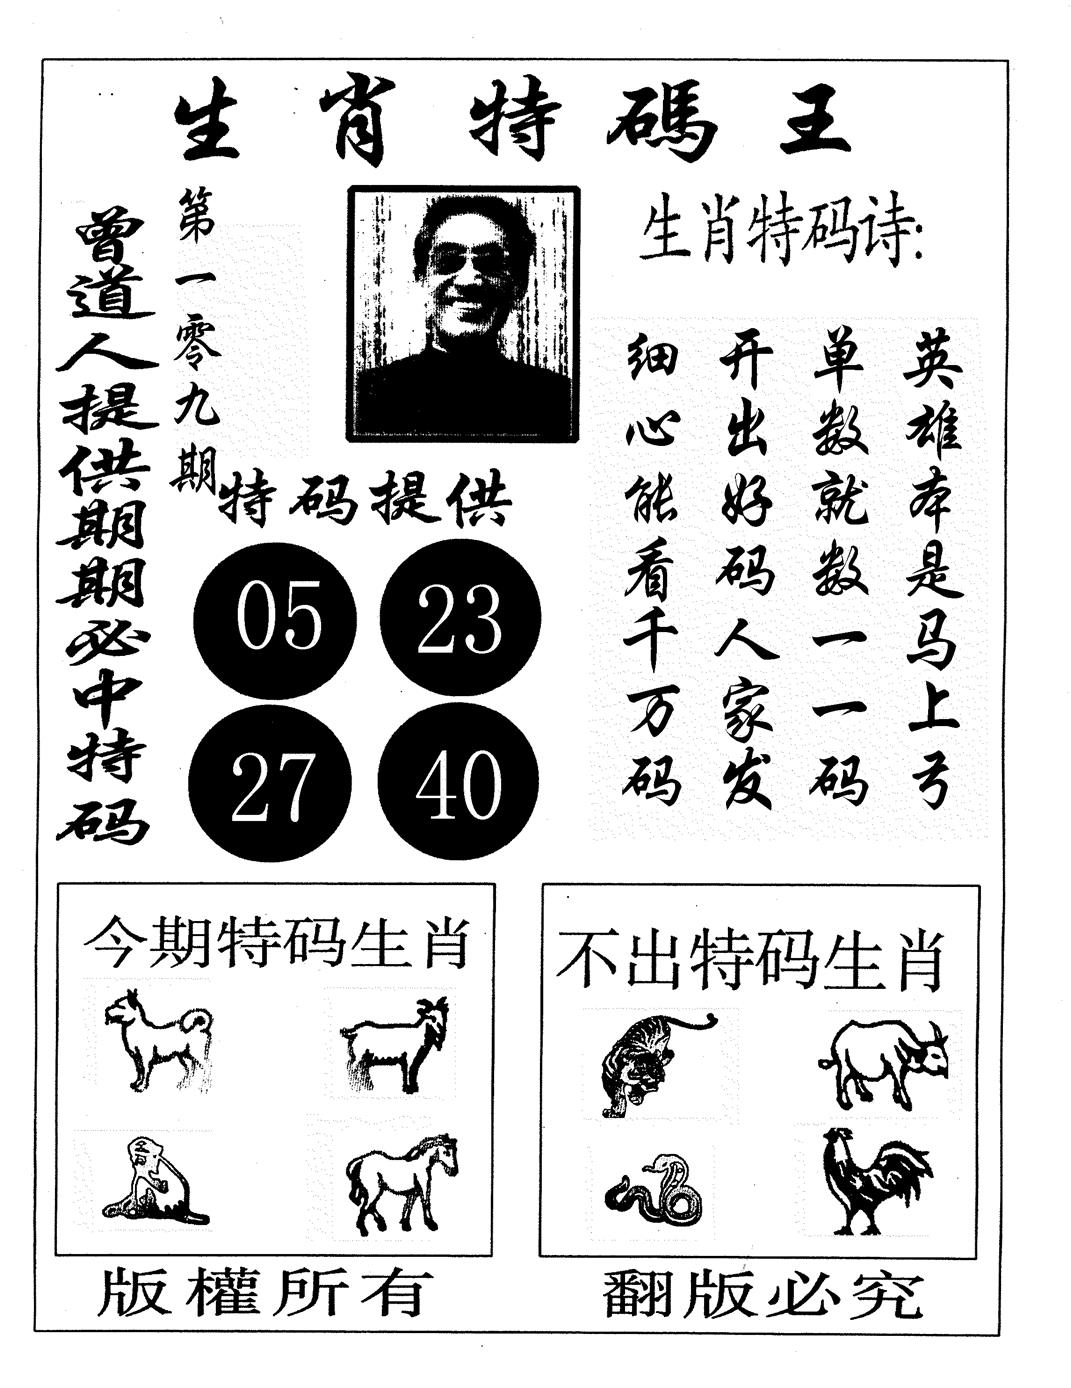 生肖特碼王
曾道人提供期期必中特码
第一零九期
生肖特码诗:
英雄本是马上弓
单数就数一一码
开出好码人家发
细心能看千万码
特码提供
05 23
27 40
今期特码生肖
不出特码生肖
版權所有
翻版必究